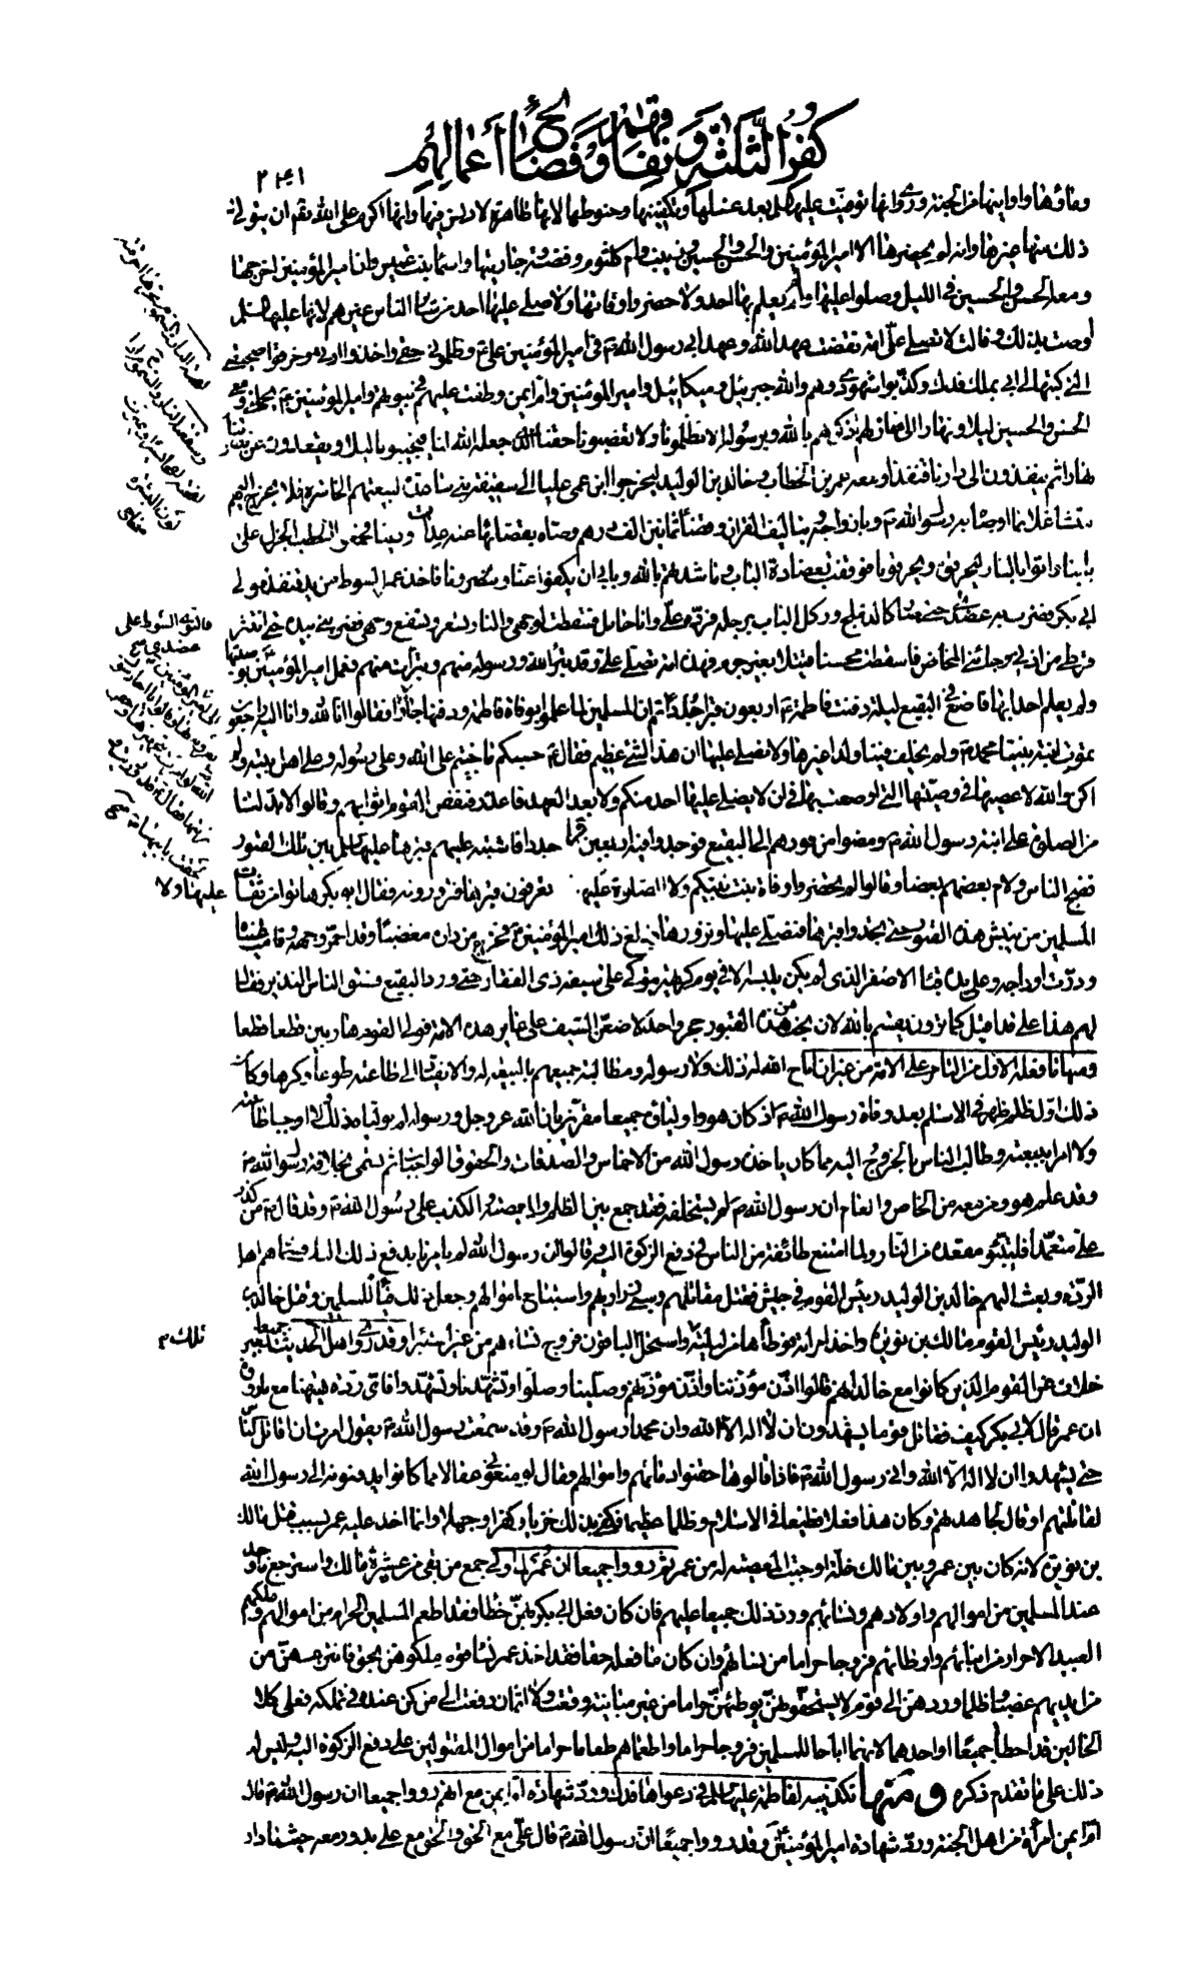 كفر الثلثة ونفاقهم وفضائح أعمالهم
٢٣١
ذلك منها غيرها وانه لم يحضرها الا امير المؤمنين والحسن والحسين وزينب وام كلثوم وفضة جاريتها واسماء بنت عميس وان امير المؤمنين اخرجها
ومعه الحسن والحسين في الليل وصلوا عليها ولم يعلم بها احد ولا حضروا وفاتها ولا صلى عليها احد من سائر الناس غيرهم لانها عليها السلم
اوصت بذلك وقالت لا تصلي علي امة نقضت عهد الله وعهد ابي رسول الله ص في امير المؤمنين علي ع وظلموني حقي واخذوا ارثي وخرقوا صحيفتي
التي كتبها لي ابي بملك فدك وكذبوا شهودي وهم والله جبرئيل وميكائيل وامير المؤمنين وام ايمن وطفت عليهم في بيوتهم وامير المؤمنين ع يحملني ومعي
الحسن والحسين ليلا ونهارا الى منازلهم اذكرهم بالله وبرسوله الا تظلمونا ولا تغصبونا حقنا الذي جعله الله لنا فيجيبونا ليلا ويقعدون عن نصرتنا
نهارا ثم ينفذون الى دارنا قنفذا ومعه عمر بن الخطاب وخالد بن الوليد ليخرجوا ابن عمي عليا الى سقيفة بني ساعدة لبيعتهم الخاسرة فلا يخرج اليهم
متشاغلا بما اوصاه به رسول الله ص وبازواجه وبتاليف القران وقضاء ثمانين الف درهم وصاه بقضائها عنه عدات ودينا فجمعوا الحطب الجزل على
بابنا واتوا بالنار ليحرقوه ويحرقونا فوقفت بعضادة الباب وناشدتهم بالله وبابي ان يكفوا عنا وينصرونا فاخذ عمر السوط من يد قنفذ مولى
ابي بكر فضرب به عضدي حتى صار كالدملج وركل الباب برجله فرده علي وانا حامل فسقطت لوجهي والنار تسعر وتسفع وجهي فضربني بيده حتى انتثر
قرطي من اذني وجائني المخاض فاسقطت محسنا قتيلا بغير جرم فهذه امة تصلي علي وقد تبرأ الله ورسوله منهم وتبرأت منهم فعمل امير المؤمنين بوصيتها
ولم يعلم احدا بها فاصنع في البقيع ليلة دفنت فاطمة ع اربعون قبرا جددا ثم ان المسلمين لما علموا بوفاة فاطمة ودفنها جاؤا فقالوا انا لله وانا اليه راجعون
تموت ابنة نبينا محمد ص ولم يخلف فينا ولدا غيرها ولا نصلي عليها ان هذا لشيء عظيم فقال ع حسبكم ما جنيتم على الله وعلى رسوله وعلى اهل بيته ولم
اكن والله لاعصيها في وصيتها التي اوصت بها في ان لا يصلي عليها احد منكم ولا بعد العهد فاعتذر فنفض القوم اثوابهم وقالوا لا بد لنا
من الصلوة على ابنة رسول الله ص ومضوا من فورهم الى البقيع فوجدوا فيه اربعين قبرا جددا فاشتبه عليهم قبرها عليها السلم بين تلك القبور
فضج الناس ولام بعضهم بعضا وقالوا لم تحضروا وفاة بنت نبيكم ولا الصلوة عليها ولا تعرفون قبرها فتزورونه فقال ابو بكر هاتوا من ثقات
المسلمين من ينبش هذه القبور حتى تجدوا قبرها فنصلي عليها ونزورها فبلغ ذلك امير المؤمنين ع فخرج من داره مغضبا وقد احمر وجهه وقامت عيناه
ودرت اوداجه وعلى يده قباه الاصفر الذي لم يكن يلبسه الا في يوم كريهة يتوكأ على سيفه ذي الفقار حتى ورد البقيع فسبق الناس النذير فقال
لهم هذا علي قد اقبل كما ترون يقسم بالله لان بحث من هذه القبور حجر واحد لاضعن السيف على غابر هذه الامة فولى القوم هاربين قطعا قطعا
ومنها ما فعله الاول من التامر على الامة من غير ان اباح الله له ذلك ولا رسوله ومطالبة جميعهم بالبيعة له والانقياد الى طاعته طوعا وكرها وكان
ذلك اول ظلم ظهر في الاسلم بعد وفاة رسول الله ص اذ كان هو واولياؤه جميعا مقرين بان الله عز وجل ورسوله لم يولياه ذلك ولا اوجبا طاعته
ولا امرا ببيعته وطالب الناس بالخروج اليه مما كان ياخذه رسول الله من الاخماس والصدقات والحقوق الواجبات ثم تسمى بخلافة رسول الله ص
وقد علم هو ومن معه من الخاص والعام ان رسول الله ص لم يستخلفه فقد جمع بين الظلم والمعصية والكذب على رسول الله ص وقد قال ص من كذب
علي متعمدا فليتبوء مقعده من النار ولما امتنع طائفة من الناس في دفع الزكوة اليه وقالوا ان رسول الله لم يامرنا بدفع ذلك اليك فسماهم اهل
الردة وبعث اليهم خالد بن الوليد رئيس القوم في جيش فقتل مقاتلهم وسبى ذراريهم واستباح اموالهم وجعل ذلك فيئا للمسلمين وقتل خالد بن
الوليد رئيس القوم مالك بن نويرة واخذ امراته فوطأها من ليلته تلك واستحل الباقون فروج نسائهم من غير استبراء وقد روى اهل الحديث جميعا بغير
خلاف عن القوم الذين كانوا مع خالد انهم قالوا اذن مؤذننا واذن مؤذنهم وصلينا وصلوا وتشهدنا وتشهدوا فاي ردة هيهنا مع ما رووه
ان عمر قال لابي بكر كيف نقاتل قوما يشهدون ان لا اله الا الله وان محمدا رسول الله ص وقد سمعت رسول الله ص يقول امرت ان اقاتل الناس
حتى يشهدوا ان لا اله الا الله واني رسول الله ص فاذا قالوها حقنوا دمائهم واموالهم فقال لو منعوني عقالا مما كانوا يدفعونه الى رسول الله
لقاتلتهم او قال لجاهدتهم وكان هذا فعلا فظيعا في الاسلام وظلما عظيما فكفى بذلك خزيا وكفرا وجهلا وانما اخذ عليه عمر بسبب قتل مالك
بن نويرة لانه كان بين عمر وبين مالك خلة اوجبت المعصية له من عمر ثم رووا جميعا ان عمر لما ولي جمع من بقي من عشيرة مالك واسترجع ما وجد
عند المسلمين من اموالهم واولادهم ونسائهم ورد ذلك جميعا عليهم فان كان فعل ابي بكر بهن خطأ فقد اطعم المسلمين الحرام من اموالهم وملكهم
العبيد الاحرار من ابنائهم واوطائهم فروجا حراما من نسائهم وان كان ما فعله حقا فقد اخذ عمر نساء قوم ملكوهن بحق فانتزعهن من
من ايديهم غصبا وظلما وردهن الى قوم لا يستحقونهن يوطئن حراما من غير مباينة وقعت ولا اثمان دفعت الى من كن عنده في تملكه فعلى كلا
الحالين قد اخطأ جميعا او احدهما لانهما اباحا للمسلمين فروجا حراما واطعماهم طعاما حراما من اموال المقتولين على دفع الزكوة اليه وليس له
ذلك على ما تقدم ذكره ومنها تكذيبه لفاطمة عليها السلم في دعواها فدك ورد شهادة ام ايمن مع انهم رووا جميعا ان رسول الله ص قال
ام ايمن امرأة من اهل الجنة ورد شهادة امير المؤمنين ع وقد رووا جميعا ان رسول الله ص قال علي مع الحق والحق مع علي يدور معه حيثما دار
فالتوى السوط على
عضدي
تلك م